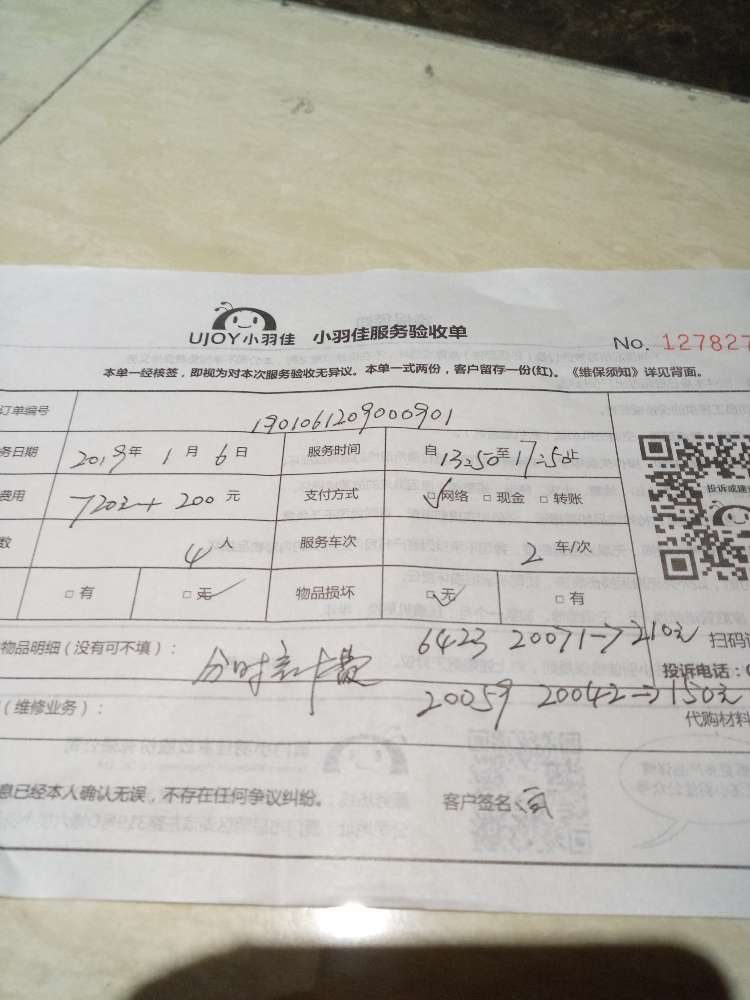 UJOY小羽佳 小羽佳服务验收单
No. 127827
本单一经核签，即视为对本次服务验收无异议。本单一式两份，客户留存一份(红)。《维保须知》详见背面。
订单编号 190106120900901
务日期 2019年 1月 6日 服务时间 自13:50至17:50止
费用 7202+200元 支付方式 □网络 □现金 □转账
数 4人 服务车次 2车/次
□有 □无 物品损坏 □无 □有
投诉或建
物品明细（没有可不填）： 6423 20071→210元 扫码
20059 20042→150元 投诉电话：
（维修业务）： 代购材料
息已经本人确认无误，不存在任何争议纠纷。 客户签名